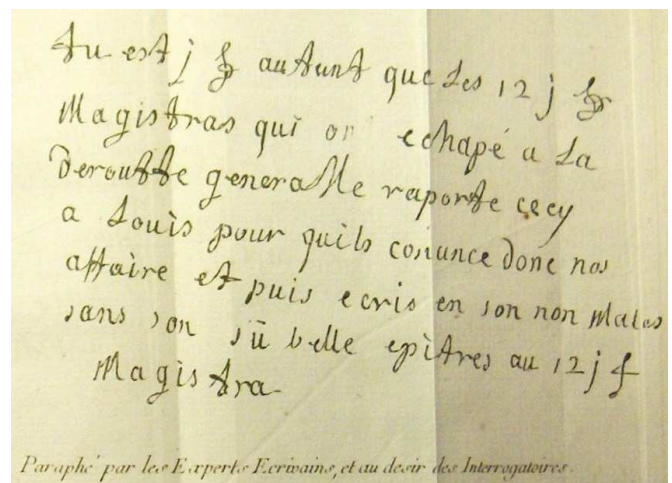 tu est j f autant que les 12 j f
Magistras qui on echapé a la
deroutte generalle raporte cecy
a Louis pour quils coñunce donc nos
affaire et puis ecris en son non Males
sans son sü belle epitres au 12 j f
Magistra
Paraphé par les Experts Ecrivains, et au desir des Interrogatoires.